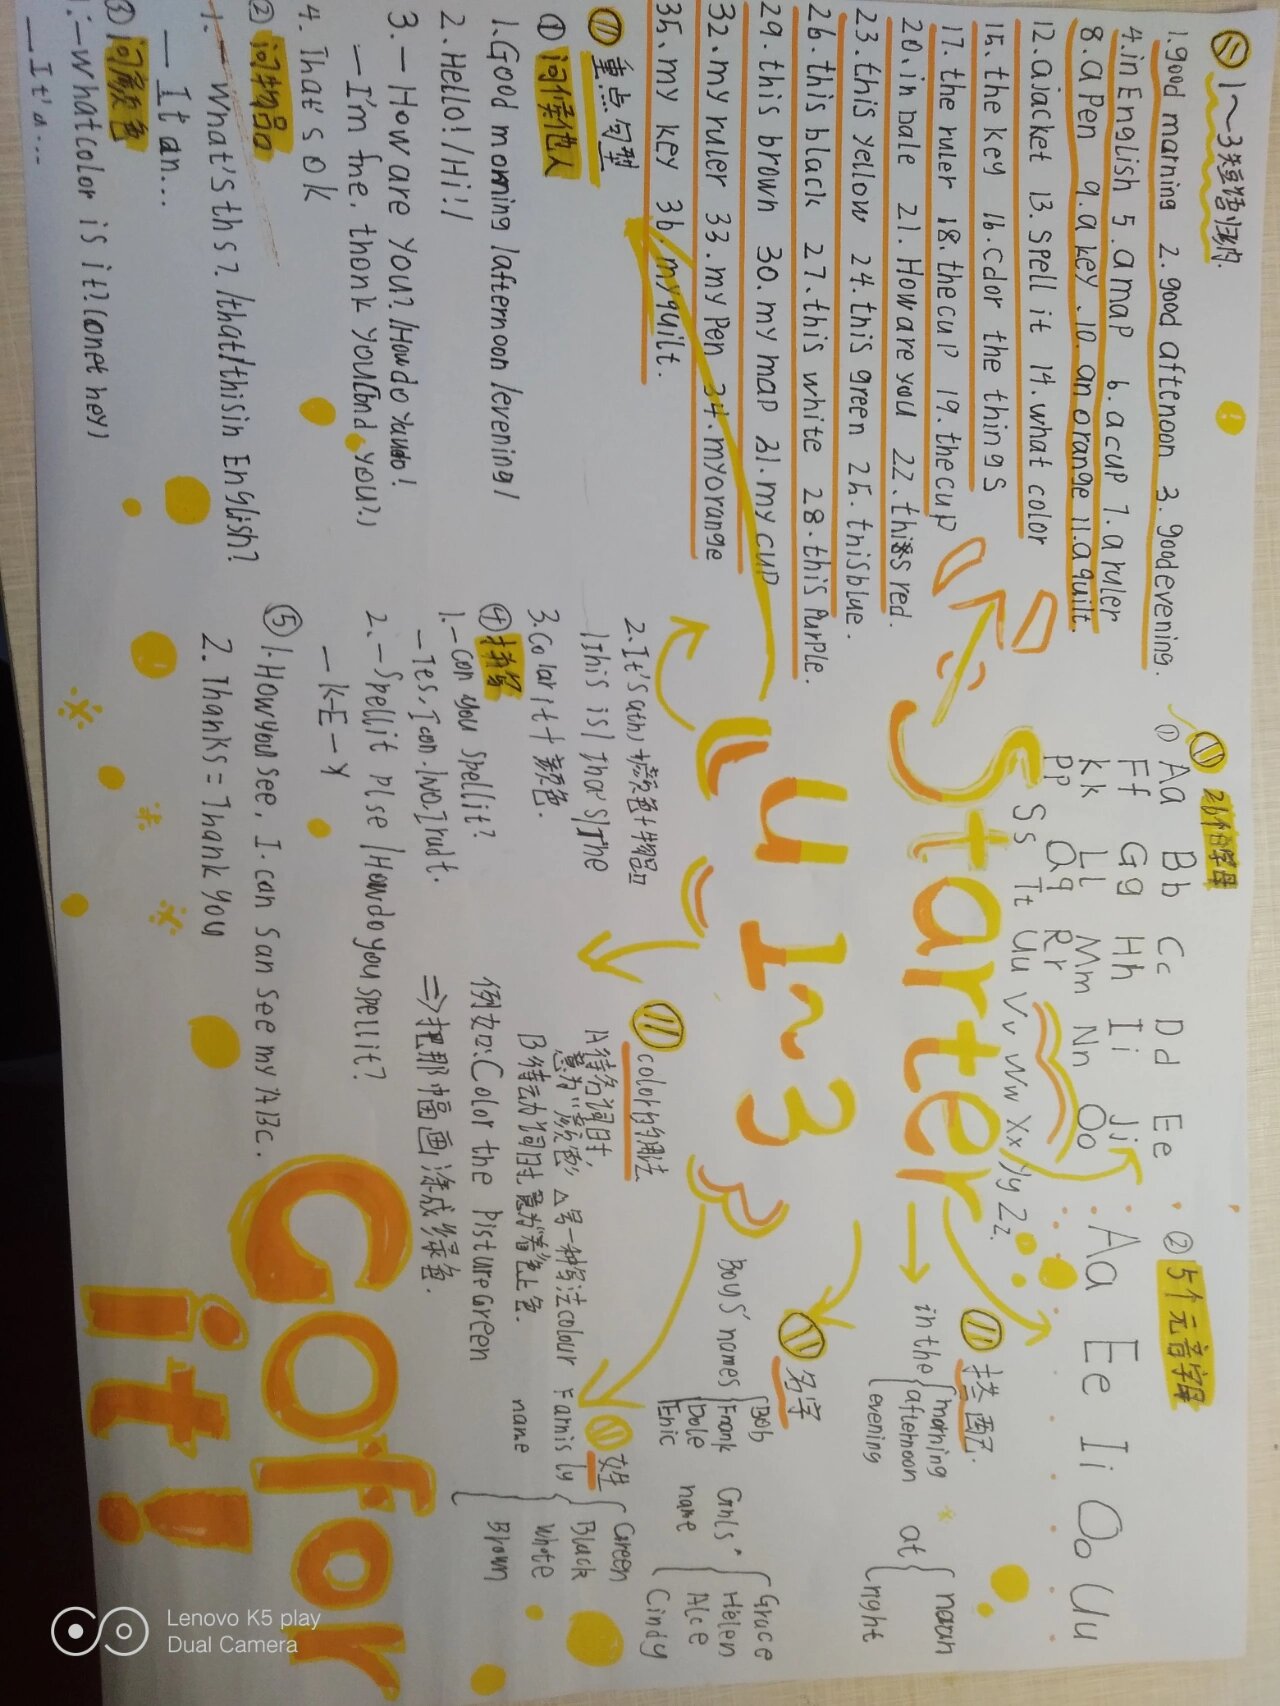 1~3短语归纳.
1.good marning 2.good afternoon 3.goodevening.
4.in English 5.a map 6.a cup 7.a ruler
8.a Pen 9.a key.10.an orange 11.a quilt.
12.a jacket 13.spell it 14.what color
15.the key 16.color the things
17.the ruler 18.the cup 19.the cup
20.in bale 21.How are you 22.this red.
23.this yellow 24.this green 25.this blue.
26.this black 27.this white 28.this Purple.
29.this brown 30.my map 31.my cup
32.my ruler 33.my Pen 34.my orange
35.my key 36.my quilt.
重点句型
① 问候他人
1.Good morning /afternoon /evening/
2.Hello! /Hi!/
3.—How are you? /How do you do!
—I'm fne. thonk you(and you?)
4. That's ok
② 问物品
1.—What's ths?./that/this in English?
—It an...
③ 问颜色
1.—what color is it?(one they)
—It'a...
2.It's a(th)+颜色+物品
This is | tha's | The
3.Colar it+颜色.
④ 拼写
1.—Con you spell it?
—Yes, I con./No.I
2.—Spell it plse /How do you spell it?
—K-E-Y
⑤ 1.How you see, I.can San see my ABc.
2.Thanks = Thank you
26个字母
① Aa Bb Cc Dd Ee
Ff Gg Hh Ii Jj
Kk Ll Mm Nn Oo
Pp Qq Rr
Ss Tt Uu Vv Ww Xx Yy Zz.
② 5个元音字母
Aa Ee Ii Oo Uu
Starter
U 1~3
搭配.
in the morning
afternoon
evening
at noon
night
名字
Boys' names
Bob
Frank
Dole
Enic
Ginls'
name
Grace
Helen
Alce
Cindy
姓
Famis ly
name
Green
Black
white
Brown
color的用法
A待名词时,
意为“颜色” △另一种写法colour
B待动词时意为“着色上色.
例如:Color the Pisture Green
⇒把那幅画涂成绿色.
Color
it!
Lenovo K5 play
Dual Camera